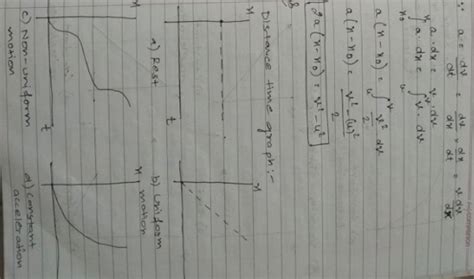 a = dv/dt = dv/dx × dx/dt = v dv/dx
∫ a·dx = ∫ v·dv
a(x-x₀) = ∫ v² dv / 2
a(x-x₀) = v²-(u)² / 2
2a(x-x₀) = v²-u²
Distance time graph:-
x
t
a) Rest
x
b) Uniform motion
x
t
c) Non-uniform motion
x
d) Constant acceleration